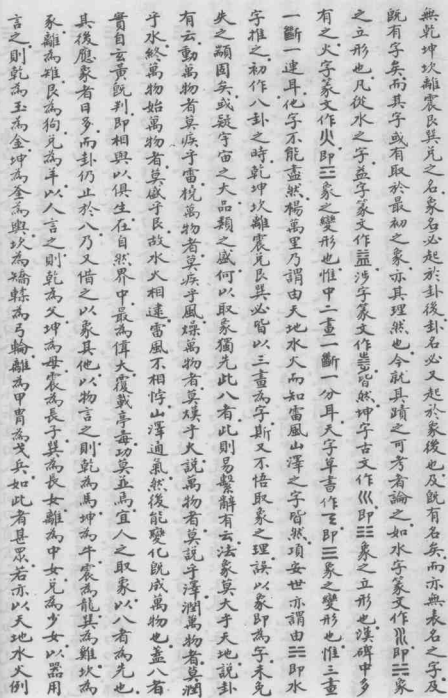 無乾坤坎離震艮巽兌之名象名必起於卦後卦名必又起於象後也及既有名矣而亦無表名之字及
既有字矣而其字或有取於最初之象亦其理然也今就其蹟之可考者論之如水字篆文作𡿭即☵象
之立形也凡從水之字益字篆文作益涉字篆文作𣥿皆然坤字古文作巛即☷象之立形也漢碑中多
有之火字篆文作火即☲象之變形也惟中二畫一斷一分耳天字草書作即☰象之變形也惟三畫
一斷一連耳他字不能盡然楊萬里乃謂由天地水火而知雷風山澤之字皆然項安世亦謂由☵即水
字推之初作八卦之時乾坤坎離震兌艮巽必皆以三畫為字斯又不悟取象之理誤以象即為字未免
失之顓固矣或疑宇宙之大品類之盛何以取象獨先此八者此則易繫辭有云法象莫大乎天地說卦
有云動萬物者莫疾乎雷橈萬物者莫疾乎風燥萬物者莫熯乎火說萬物者莫說乎澤潤萬物者莫潤
乎水終萬物始萬物者莫盛乎艮故水火相逮雷風不相悖山澤通氣然後能變化既成萬物也蓋八者
實自玄黃既判即相與以俱生在自然界中最為偉大覆載亭毒功莫並焉宜人之取象以八者為先也
其後應象者日多而卦仍止於八乃又借之以象其他以物言之則乾為馬坤為牛震為龍巽為雞坎為
豕離為雉艮為狗兌為羊以人言之則乾為父坤為母震為長子巽為長女離為中女兌為少女以器用
言之則乾為玉為金坤為釜為輿坎為矯輮為弓輪離為甲胄為戈兵如此者甚眾若亦以天地水火例